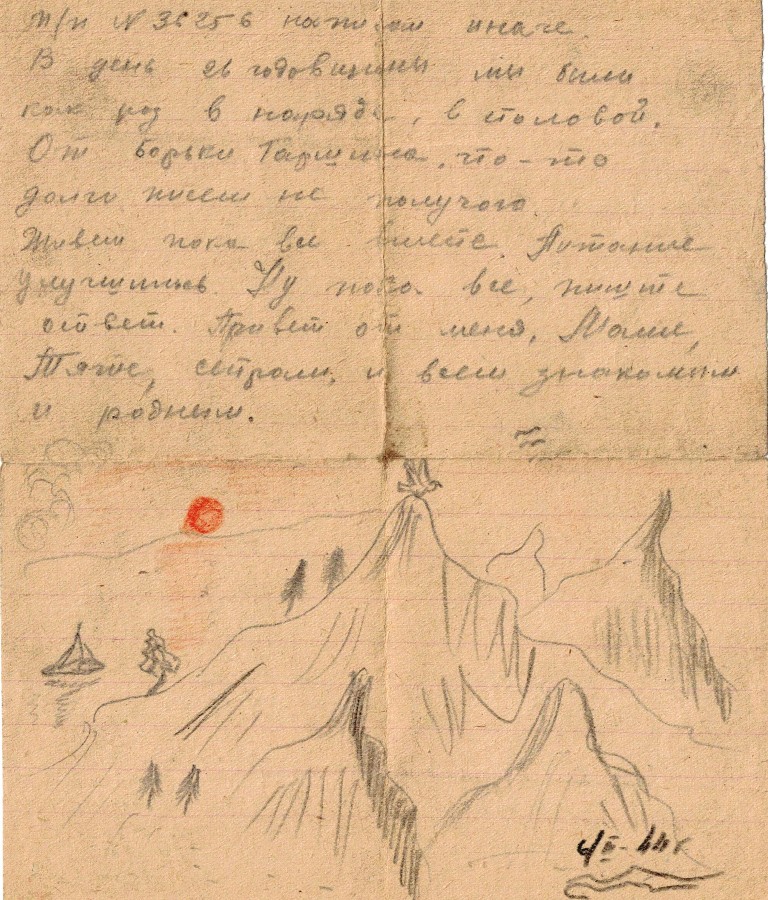 П/п № 36256 напишем иначе.
В день 26 годовщины мы были
как раз в наряде, в столовой.
От Борьки Гаршина, что-то
долго писем не получаю
Живем пока все вместе. Питание
улучшилось. Ну пока все, пишите
ответ. Привет от меня, Маме,
Тяте, сестрам, и всем знакомым
и родным.
44 г